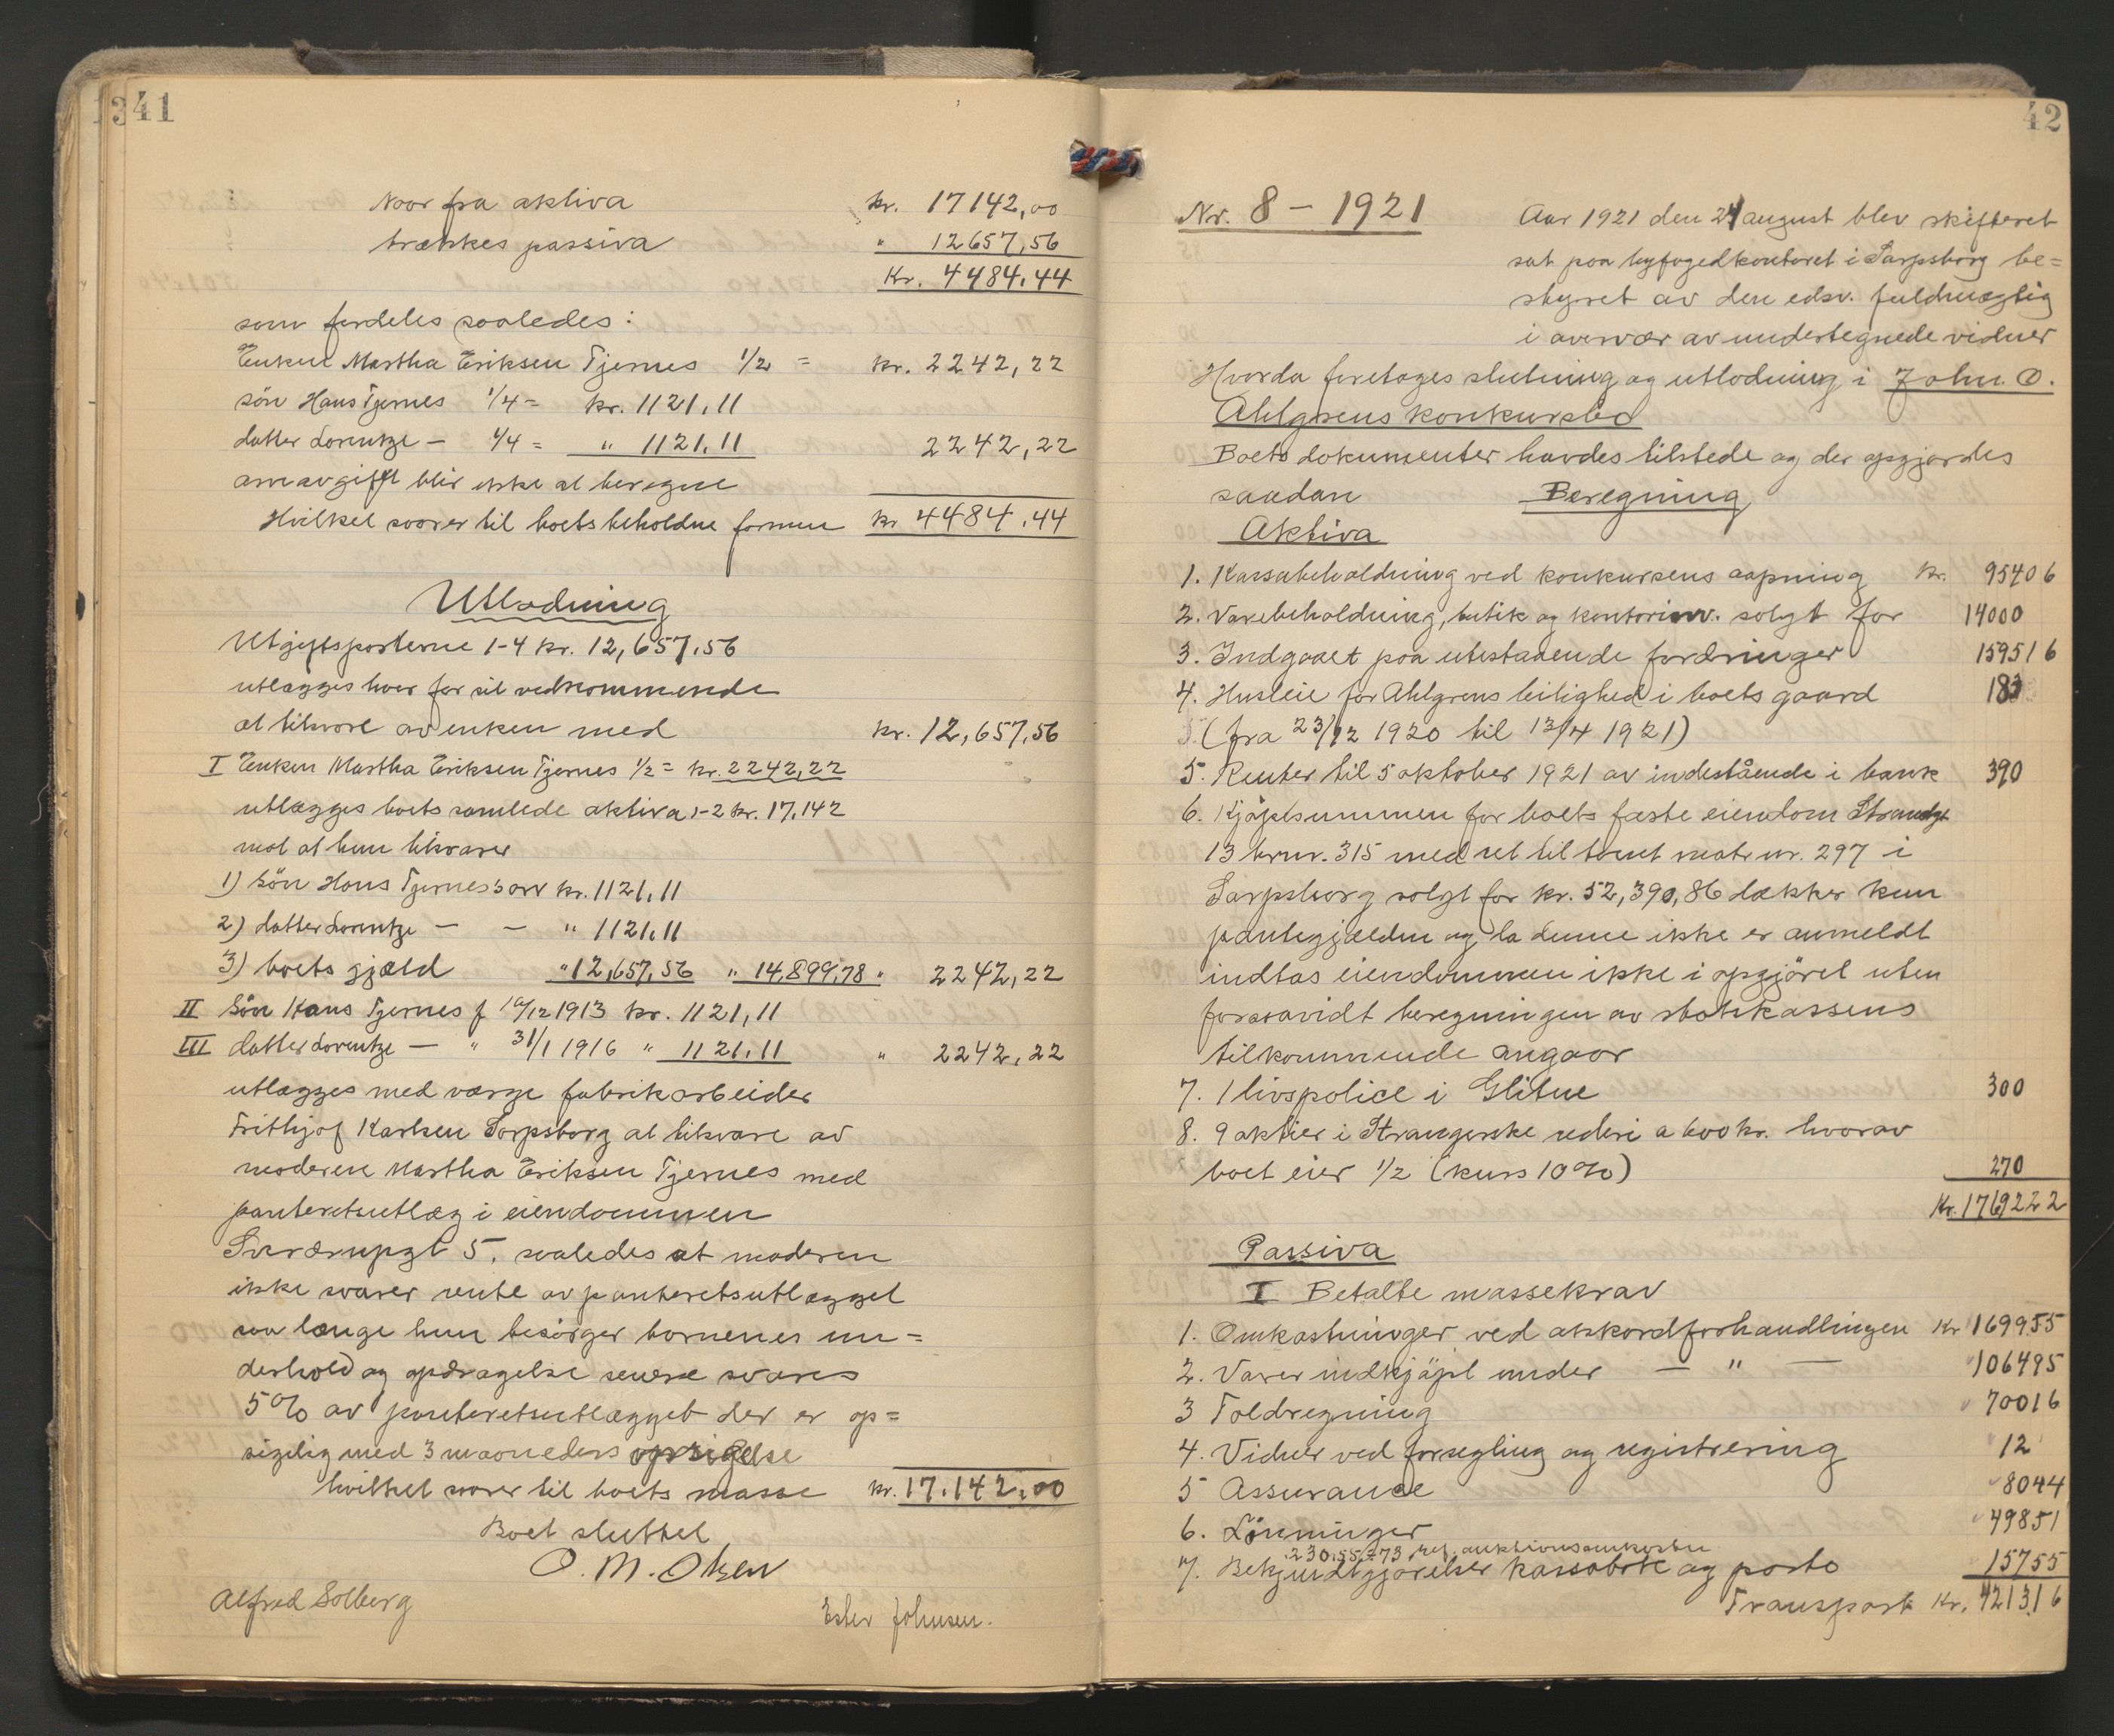 341
Naar fra aktiva kr. 17142,00
trækkes passiva " 12657,56
Kr. 4484.44
som fordeles saaledes:
Enken Martha Eriksen Tjernes 1/2 = kr. 2242,22
sön Hans Tjernes 1/4 = kr. 1121.11
datter Lorentze — 1/4 = " 1121.11 2242,22
arveavgift blir ikke at beregne
Hvilket svarer til boets beholdne formue kr 4484.44
Utlodning
Utgiftsposterne 1-4 kr. 12,657.56
utlægges hver for sit vedkommende
at tilsvare av enken med kr. 12,657.56
I Enken Martha Eriksen Tjernes 1/2 = kr. 2242,22
utlægges boets samlede aktiva 1-2 kr. 17.142
mot at hun tilsvarer
1) Sön Hans Tjernes's arv kr. 1121.11
2) datter Lorentze — — " 1121.11
3) boets gjæld " 12,657,56 " 14.899,78 " 2242,22
II Sön Hans Tjernes f 10/12 1913 kr. 1121,11
III datter Lorentze — " 31/1 1916 " 1121.11 " 2242,22
utlægges med værge fabrikarbeider
Frithjof Karlsen Sarpsborg at tilsvare av
moderen Martha Eriksen Tjernes med
panteretsutlæg i eiendommen
Sverdrupsgt 5. saaledes at moderen
ikke svarer rente av panteretsutlægget
saa længe hun besörger barnenes un=
derhold og opdragelse senere svares
5% av panteretsutlægget der er op=
sigelig med 3 maaneders opsigelse
hvilket svarer til boets masse kr. 17.142.00
Boet sluttet
O. M. Olsen
Alfred Solberg
Ester Johnsen.
42
Nr. 8 – 1921
Aar 1921 den 24 august blev skifteret
sat paa byfogedkontoret i Sarpsborg be=
styret av den edsv. fuldmægtig
i overvær av undertegnede vidner
Hvorda foretages slutning og utlodning i John. O.
Ahlgrens konkursbo
Boets dokumenter havdes tilstede og der opgjordes
saadan Beregning
Aktiva
1. Kassabeholdning ved konkursens aapning kr. 954 06
2. Varebeholdning, butik og kontorinv. solgt for 14000
3. Indgaaet paa utestaaende fordringer 1595 16
4. Husleie for Ahlgrens leilighed i boets gaard 183
(fra 23/12 1920 til 13/4 1921)
5. Renter til 5 oktober 1921 av indestående i bank 390
6. Kjöpesummen for boets faste eiendom Strandgt
13 brnr. 315 med ret til tomt matr nr. 297 i
Sarpsborg solgt for kr. 52,390,86 dækker kun
pantegjælden og da denne ikke er anmeldt
indtas eiendommen ikke i opgjöret uten
forsaavidt beregningen av statskassens
tilkommende angaar
7. 1 livspolice i Glitne 300
8. 9 aktier i Strangerske rederi a 600 kr. hvorav
boet eier 1/2 (kurs 10%) 270
Kr. 17692 22
Passiva
I Betalte massekrav
1. Omkostninger ved akkordforhandlingen Kr 1699 55
2. Varer indkjöpt under — " — 1064 95
3 Toldregning 700 16
4. Vidner ved forsegling og registrering 12
5 Assurance 80 44
6. Lönninger 498 51
230.55 ÷ 73 ref. auktionsomkostn
7. Bekjendtgjörelser kassobok og porto 157 55
Transport Kr. 4213.16